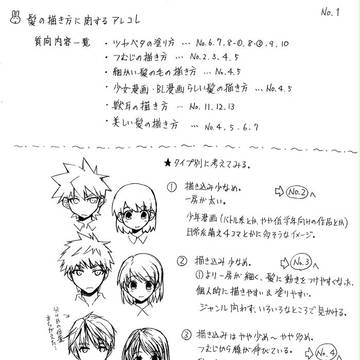 No.1
髪の描き方に関するアレコレ
質問内容一覧
・ツヤベタの塗り方 … No.6.7.8-①.8-②.9.10
・つむじの描き方 … No.2.3.4.5
・細かい髪の毛の描き方 … No.4.5
・少女漫画・BL漫画らしい髪の描き方 … No.4.5
・獣耳の描き方 … No.11.12.13
・美しい髪の描き方 … No.4.5.6.7
★タイプ別に考えてみる。
① 描き込み少なめ。 ⇒ No.2 へ
一房が太い。
少年漫画(バトル系とか、やや低学年向けの作品とか)
日常&萌え4コマとかに向そうなイメージ。
② 描き込み少なめ。 ⇒ No.3 へ
①より一房が細く、髪に動きをつけやすくなった。
個人的に描きやすい&塗りやすい。
ジャンル向わず、いろいろなところで見かける。
③ 描き込みはやや少め〜やや多め。
つむじから顔が伸びている。
No.4